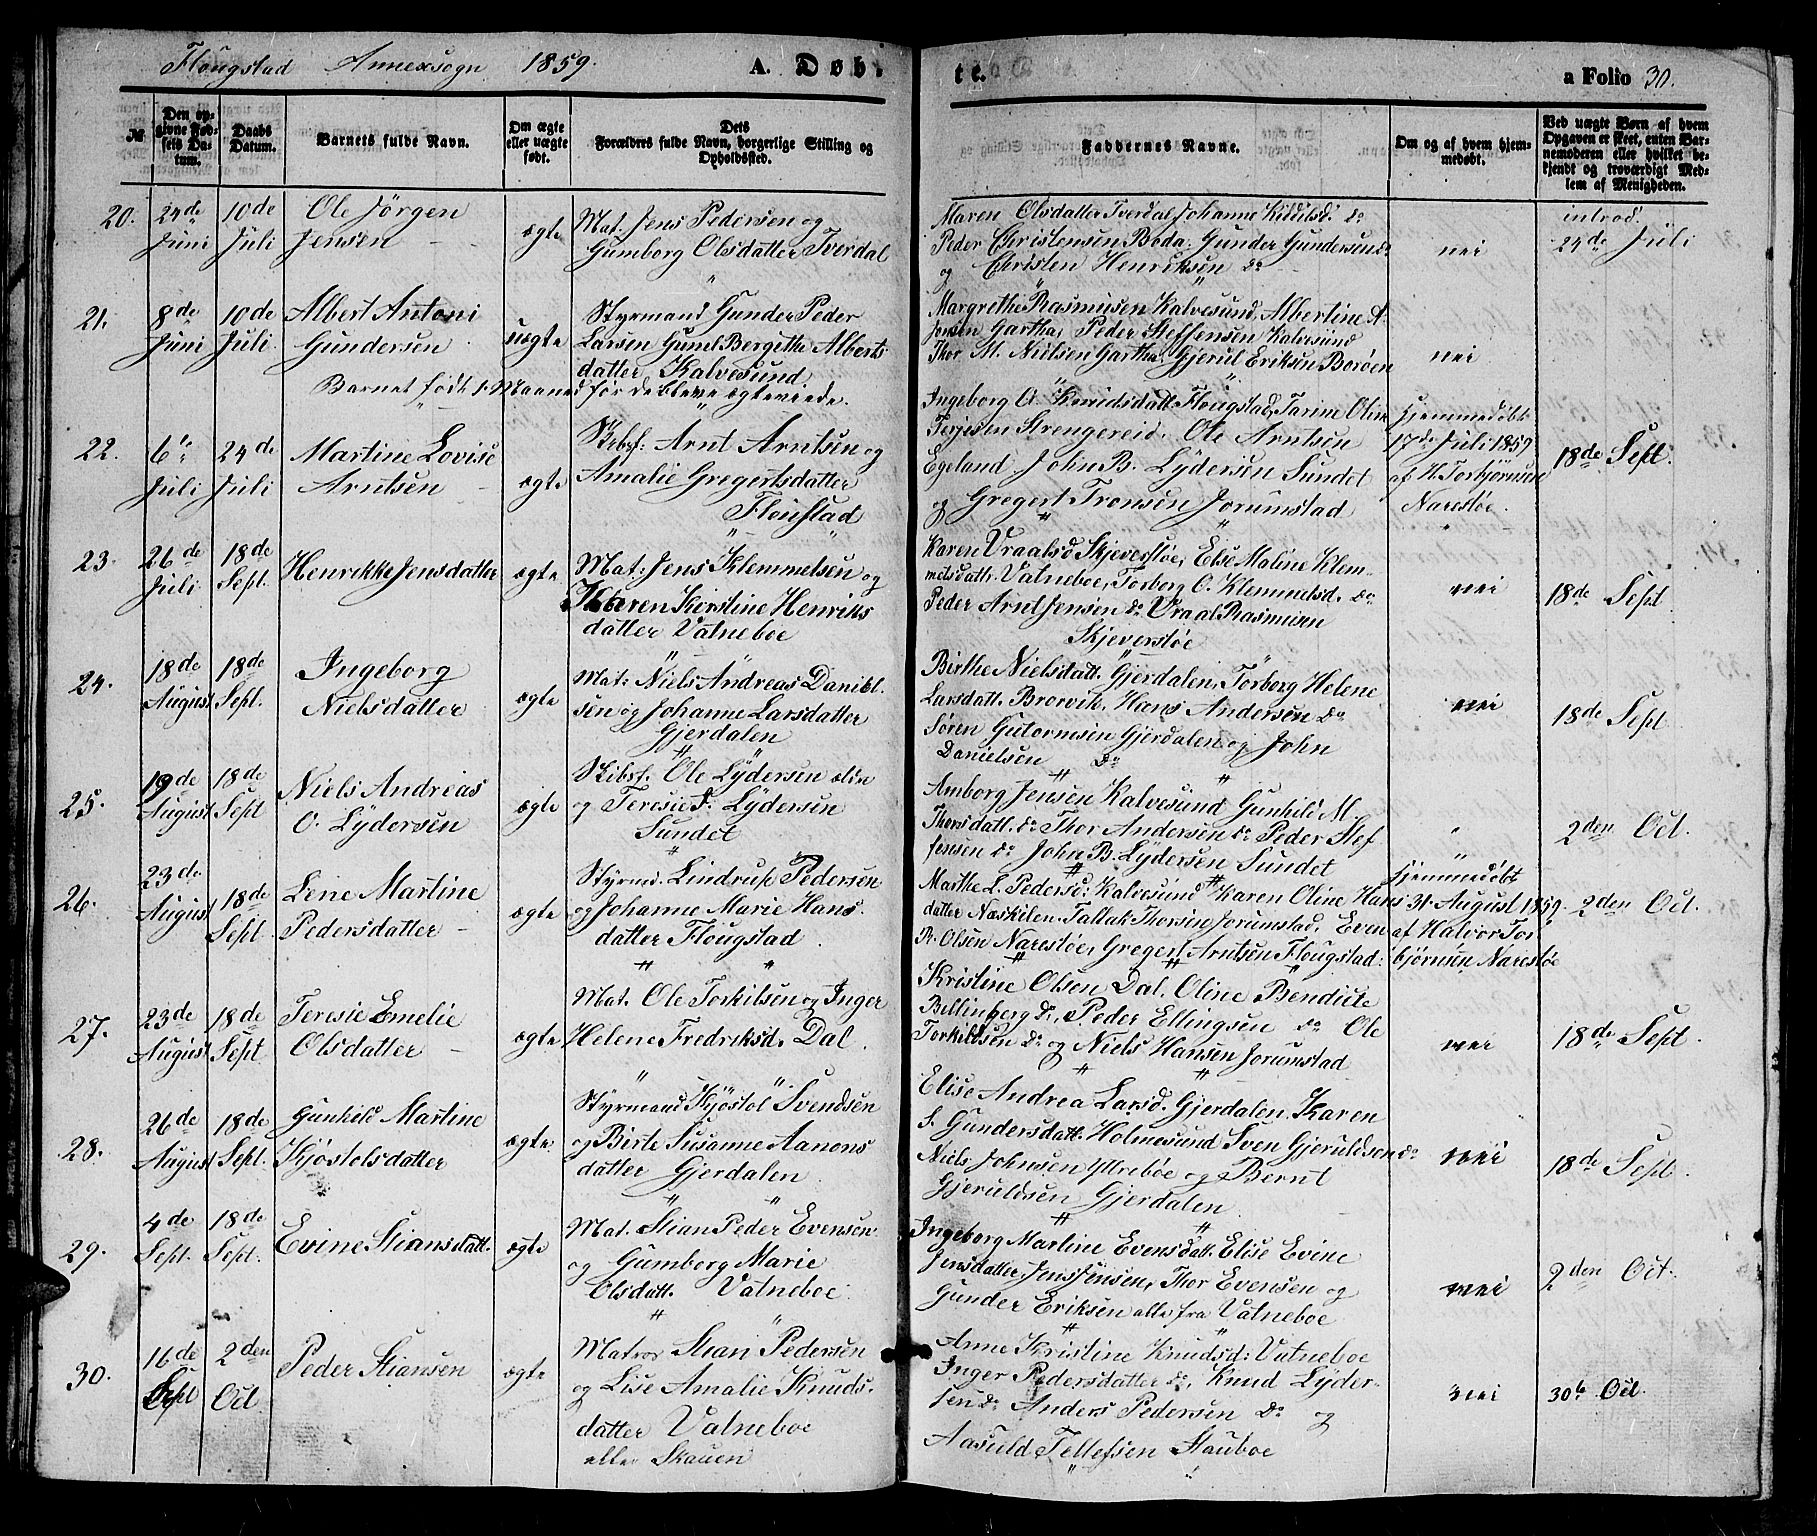 Flougstad Annexsogn 1859. A. Døbte. a Folio 30.
№
Den opgivne Fødsels Datum.
Daabs Datum.
Barnets fulde Navn.
Om ægte eller uægte født.
Dets Forældres fulde Navn, borgerlige Stilling og Opholdssted.
Faddernes Navne.
Om og af hvem hjemmedøbt.
Ved uægte Børn af hvem Opgaven er skeet, enten Barnemoderen eller hvilket bekjendt og troværdigt Medlem af Menigheden.
20. 24de Juni
10de Juli
Ole Jörgen
Jensen
ægte
Mat. Jens Pedersen og
Gumborg Olsdatter Tverdal
Maren Olsdatter Tverdal Johanne Kittilsd. do
Peder Christensen Boda. Gunder Gundersen do
og Christen Henriksen do
nei
introd.
24de Juli
21. 8de Juni
10de Juli
Albert Antoni
Gundersen
uægte
Styrmand Gunder Peder
Larsen Gunil Bergithe Alberts
datter Kalvesund.
Barnet født 1 Maaned før de bleve ægteviede.
Margrethe Rasmusen Kalvesund, Albertine A.
Jensen Gartha, Peder Steffensen Kalvesund
Thor M. Nielsen Gartha. Gjerul Eriksen Borøen
nei
22. 6te Juli
24de Juli
Martine Lovise
Arntsen
ægte
Skibsf: Arnt Arntsen og
Amalie Gregertsdatter
Floustad
Ingeborg A. Knudsdatt. Flougstad, Tarine Oline
Terjesen Strengereid. Ole Arntsen
Egeland John B. Lydersen Sundet
og Gregert Tronsen Jorumstad
Hjemmedøbt
17de Juli 1859
af H. Torbjörnsen
Narestøe.
18de Sept.
23. 26de Juli
18de Sept.
Henrikke Jensdatter
ægte
Mat: Jens Klemmetsen og
Karen Kirstine Henriks
datter Vatneboe
Karen Vraalsd Skjeverstøe, Else Maline Klem-
metsdatt. Vatneboe, Torborg O. Klemmetsd. do
Peder Arnt Jensen do Vraal Rasmusen
Skjeverstøe
nei
18de Sept
24. 18de August
18de Sept.
Ingeborg
Nielsdatter
ægte
Mat: Niels Andreas Daniel
sen og Johanne Larsdatter
Gjerdalen
Birthe Nielsdatt. Gjerdalen, Torborg Helene
Larsdatt. Brorvik, Hans Andersen do
Sören Gutormsen Gjerdalen og John
Danielsen do
nei
18de Sept
25. 19de August
18de Sept
Niels Andreas
O. Lydersen
ægte
Skibsf. Ole Lydersen ældre
og Teresie T. Lydersen
Sundet
Amborg Jensen Kalvesund Gunhild M.
Thorsdatt. do Thor Andersen do Peder Stef
fensen do John B. Lydersen Sundet
"
2den Oct.
26. 23de August
18de Sept.
Lene Martine
Pedersdatter
ægte
Styrmd. Lindrup Pedersen
og Johanne Marie Hans
datter Flougstad
Marthe L. Pedersd: Kalvesund Karen Oline Hans
datter Næskilen. Tallak Thorsen Jorumstad, Even
R. Olsen Narestøe, Gregert Arntsen Flougstad:
Hjemmedøbt
31 August 1859.
af Halvor Tor
bjørnsen Narestøe
2den Oct.
27. 23de August
18de Sept
Teresie Emelie
Olsdatter
ægte
Mat. Ole Torkilsen og Inger
Helene Fredriksd. Dal
Kristine Olsen Dal. Oline Bendicte
Bellinberg do, Peder Ellingsen do Ole
Torkildsen do og Niels Hansen Jorumstad
nei
18de Sept.
28. 26de August
18de Sept.
Gunhild Martine
Kjöstolsdatter
ægte
Styrmand Kjöstol Svendsen
og Birte Susanne Aanons
datter Gjerdalen
Elise Andrea Larsd. Gjerdalen. Karen
S. Gundersdatt. Holmesund Sven Gjeruldsen do
Niels Johnsen Yttrebøe og Bernt
Gjeruldsen Gjerdalen
nei
18de Sept
29. 4de Sept.
18de Sept.
Evine Stiansdatt.
ægte
Mat. Stian Peder Evensen
og Gumborg Marie
Olsdatt. Vatneboe
Ingeborg Martine Evensdatt. Elise Evine
Jensdatter, Jens Jensen, Thor Evensen og
Gunder Eriksen alle fra Vatneboe
nei
2den Oct.
30. 16de Sept
2den Oct
Peder Stiansen
ægte
Matros Stian Pedersen
og Lise Amalie Knuds.
datter Vatneboe
eller Skauen
Anne Kristine Knudsd: Vatneboe
Inger Pedersdatter do, Knud Lyder-
sen do Anders Pedersen do og
Aasuld Tellefsen Stauboe
nei
30te Oct.